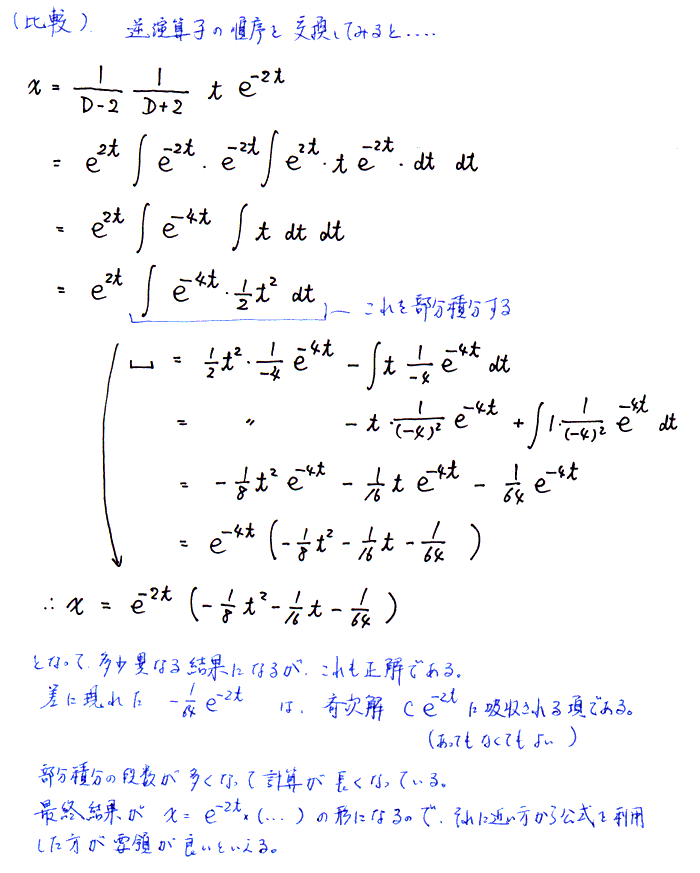 (比較). 逆演算子の順序を交換してみると....
x = 1/(D-2) 1/(D+2) t e^{-2t}
= e^{2t} ∫ e^{-2t} · e^{-2t} ∫ e^{2t} · t e^{-2t} · dt dt
= e^{2t} ∫ e^{-4t} ∫ t dt dt
= e^{2t} ∫ e^{-4t} · 1/2 t² dt ← これを部分積分する
⎵ = 1/2 t² · 1/-4 e^{-4t} - ∫ t 1/-4 e^{-4t} dt
= 〃 - t · 1/(-4)² e^{-4t} + ∫ 1 · 1/(-4)² e^{-4t} dt
= - 1/8 t² e^{-4t} - 1/16 t e^{-4t} - 1/64 e^{-4t}
= e^{-4t} (- 1/8 t² - 1/16 t - 1/64 )
∴ x = e^{-2t} (- 1/8 t² - 1/16 t - 1/64 )
となって、多少異なる結果になるが、これも正解である。
差に現れた - 1/64 e^{-2t} は、斉次解 C e^{-2t} に吸収される項である。
(あってもなくてもよい)
部分積分の段数が多くなって計算が長くなっている。
最終結果が x = e^{-2t} × (...) の形になるので、それに近い方から公式を利用
した方が要領が良いといえる。